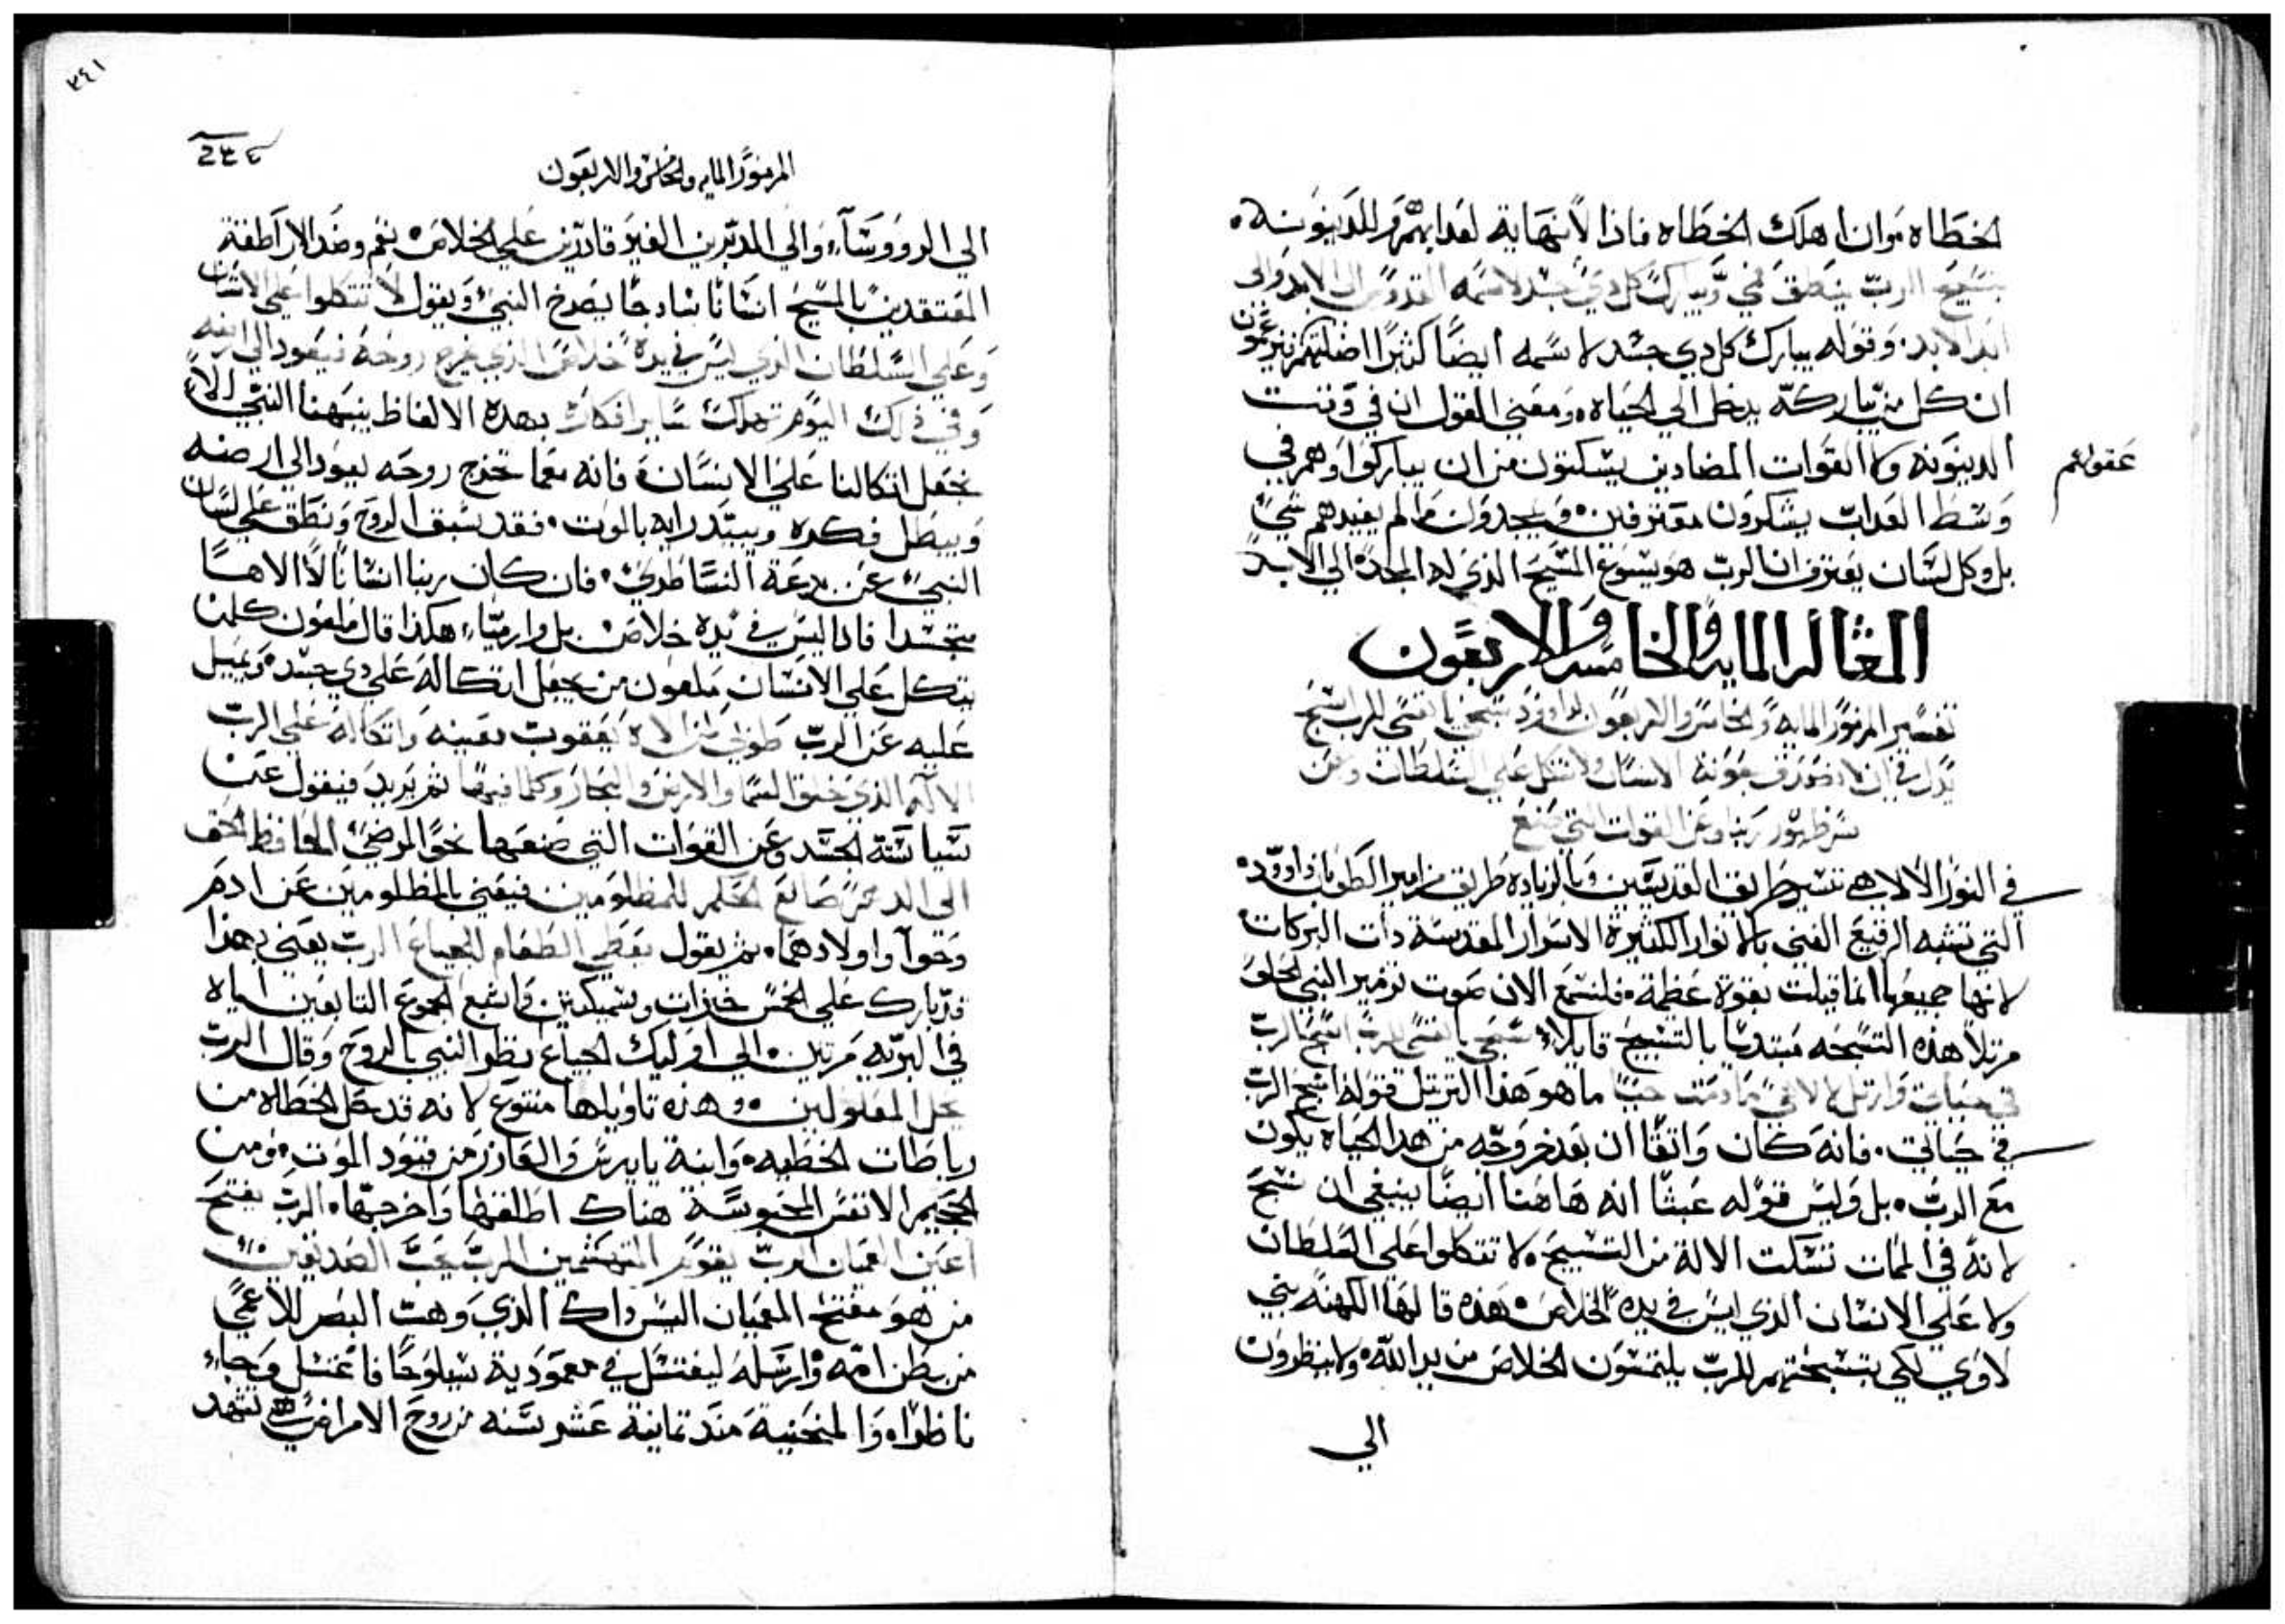 الخطاه. وان اهلك الخطاه فاذا لا نهاية لعدابهم وللدينونه.
الرب ينطق فمي ويبارك كل دي جسد لاسمه القدوس الى الابد والى
ابد الابد. وقوله يبارك كل دي جسد لاسمه ايضًا كثيرًا اضلتهم
ان كل من يباركه يدخل الي الحياه. ومعني القول ان في وقت
الدينونه ولا القوات المضادين يسكتون من ان يباركوا وهم في
عقولهم
وسط العداب يشكرون معترفين. ويجدون ما لم يفيدهم شي
بل وكل لسان يعترف ان الرب هو يسوع المسيح الذي له المجد الي الابد
المقاله المايه والخامسه والاربعون
تفسير المزمور المايه والخامس والاربعون لداوود سبحي يا نفسي للرب اسبح
يدل في ان لا نصدق بمعونة الانسان ولا نتكل علي السلطان وعن
سر ظهور ربنا وعن القوات التي صنع
في النور الالاهي تسير طريق القديسين وبالزياده طريق مزامير الطوبان داوود.
التي تشبه الرقيع الغني بالانوار الكثيرة الاسرار المقدسة دات البركات
لانها جميعها انما قيلت بقوة عظمة. فلنسمع الان صوت تزمير النبي الحلو
مرتلاً هذه التسبحه مبتديًا بالتسبيح قايلاً سبحي يا نفسي للرب اسبح الرب
في حياتي وارتل لالاهي ما دمت حيًا ما هو هذا الترتيل قوله اسبح الرب
في حياتي. فانه كان واثقًا ان بعد خروجه من هدا الحياه يكون
مع الرب. بل وليس قوله عبثًا انه هاهنا ايضًا ينبغي ان نسبح
لانه في الممات تسكت الالة من التسبيح. لا تتكلوا علي السلطان
ولا علي الانسان الذي ليس في يده الخلاص. هذه قالها الكهنه بني
لاوي لكي بتسبحتهم للرب يلتمسون الخلاص من يد الله. ولا ينظرون
الي
٢٤١
٢٣٤
المزمور المايه والخامس والاربعون
الي الروووسآء والي المدبرين الغير قادرين علي الخلاص. نعم وضد الاراطقة
المعتقدين بالمسيح انسانًا ساذجًا يصرخ النبي ويقول لا تتكلوا علي الانسان
وعلي السلطان الذي ليس في يده خلاص الذي تخرج روحه فيعود الي ارضه
وفي ذلك اليوم تهلك ساير افكاره بهده الالفاظ ينبهنا النبي الا
نجعل اتكالنا علي الانسان. فانه معما تخرج روحه ليعود الي ارضه
ويبطل فكره ويبتد رايه بالموت. فقد سبق الروح ونطق علي لسان
النبي عن بدعة النساطري. فان كان ربنا انسانًا لا الاهًا
متجسدا فادا ليس في يده خلاص. بل وارميا هكذا قال ملعون كلمن
يتكل علي الانسان ملعون من يجعل اتكاله علي دي جسد. ويميل
عليه عن الرب طوبي من الاه يعقوب بعينه واتكاله علي الرب
الاله الذي خلق السما والارض والبحار وكلما فيها ثم يزيد فيقول عن
سياسة الجسد وعن القوات التي صنعها نحو المرضي الحافظ الحق
الي الدهر صانع الحكم للمظلومين فيعني بالمظلومين عن ادم
وحوآ واولادهما. ثم يقول يعطي الطعام للجياع الرب يعني بهذا
تبارك علي الخمس خبزات وسمكتين واشبع الجموع التابعين اياه
في البريه مرتين. الي اوليك الجياع نظر النبي بالروح وقال الرب
يحل المغلولين. وهذه تاويلها متنوع لانه قد حل الخطاه من
رباطات الخطيه. وابنة يايرس والعازر من قيود الموت. ومن
الجحيم الانفس المحبوسة هناك اطلقها واخرجها. الرب يفتح
اعين العميان الرب يقوم المتهشمين الرب يحب الصديقين
من هو مفتح العميان اليس داك الذي وهب البصر للاعمي
من بطن امه وارسله ليغتسل في معمودية سيلوحا فاغتسل وجاء
ناظرا. والمنحنية مند تمانية عشر سنه من روح الامراض تشهد